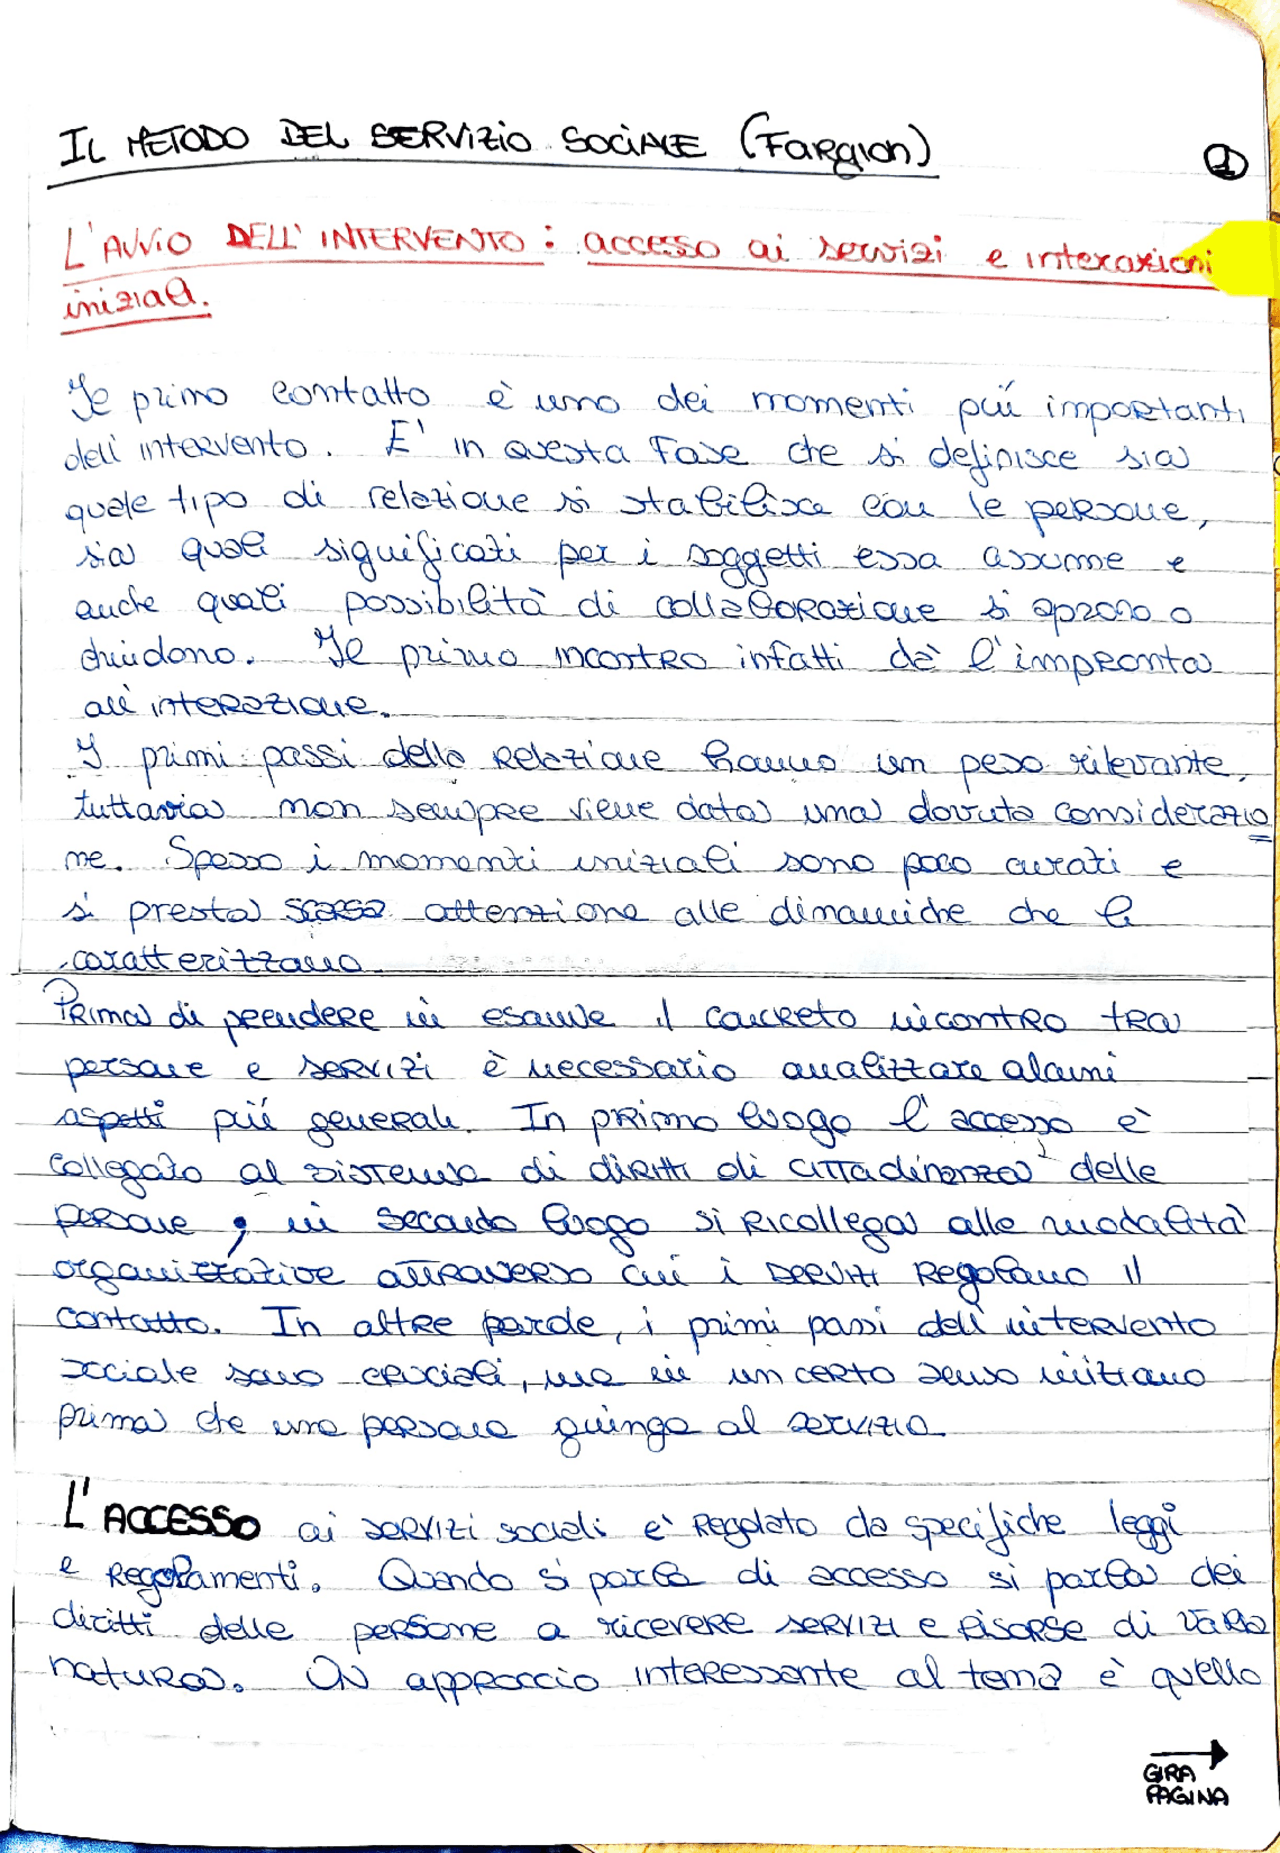 IL METODO DEL SERVIZIO SOCIALE (Fargion)
1
L'AVVIO DELL'INTERVENTO: accesso ai servizi e interazioni
iniziali.
Il primo contatto è uno dei momenti più importanti
dell'intervento. E' in questa fase che si definisce sia
quale tipo di relazione si stabilisce con le persone,
sia quali significati per i soggetti essa assume e
anche quali possibilità di collaborazione si aprono o
chiudono. Il primo incontro infatti dà l'impronta
all'interazione.
I primi passi della relazione hanno un peso rilevante,
tuttavia non sempre viene data una dovuta considerazio
ne. Spesso i momenti iniziali sono poco curati e
si presta scarsa attenzione alle dinamiche che li
caratterizzano.
Prima di prendere in esame il concreto incontro tra
persone e servizi è necessario analizzare alcuni
aspetti più generali. In primo luogo l'accesso è
collegato al sistema di diritti di cittadinanza delle
persone; in secondo luogo si ricollega alle modalità
organizzative attraverso cui i servizi regolano il
contatto. In altre parole, i primi passi dell'intervento
sociale sono cruciali, ma in un certo senso iniziano
prima che una persona giunga al servizio.
L'ACCESSO ai servizi sociali e' regolato da specifiche leggi
e regolamenti. Quando si parla di accesso si parla dei
diritti delle persone a ricevere servizi e risorse di varia
natura. Un approccio interessante al tema è quello
GIRA
PAGINA